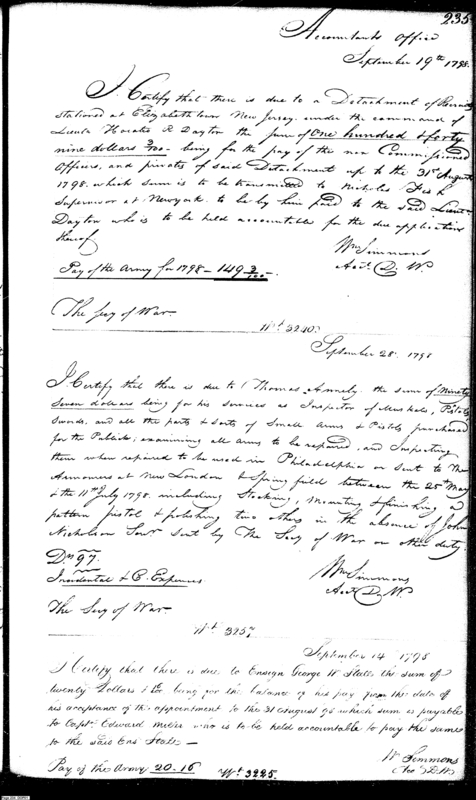 235
Accountants Office
September 19th 1798.
I Certify that there is due to a Detachment of Recruits
stationed at Elizabethtown New Jersey under the command of
Lieut. Horatio R Dayton the sum of One hundred & forty
nine dollars 2/100 being for the pay of the non Commissioned
Officers, and privates of said Detachment up to the 31st August
1798. which sum is to be transmitted to Nicholas Fish
Supervisor at Newyork. to be by him paid to the said Lieut
Dayton who is to be held accountable for the due application
thereof
Wm Simmons
Acct. D. W.
Pay of the Army for 1798 - 149 2/100.
The Secy of War
Wt. 3240
September 28. 1798
I Certify that there is due to Thomas Annely the sum of Ninety
Seven dollars being for his services as Inspector of Muskets, Pistols
Swords, and all the parts & sorts of Small Arms & Pistols purchased
for the Public; examining all arms to be repaired, and Inspecting
them when repaired to be used in Philadelphia or sent to the
Armourers at New London & Springfield between the 25th May
& the 11th July 1798. including Stocking, Mounting & finishing a
pattern pistol & polishing two others in the absence of John
Nicholson sent by The Secy of War on other duty
Drs 97.
Incidental & C. Expences
Wm Simmons
Acct D. W.
The Secy of War
Wt. 325
September 14 1798
I Certify that there is due to Ensign George W. Stalls the sum of
twenty Dollars being for the balance of his pay from the date of
his acceptance of the appointment to the 31 August 98 which sum is payable
to Captn. Edward Miller who is to be held accountable to pay the same
to the said Ens Stalls -
W. Simmons
Acct D. W.
Pay of the Army 20.16 Wt. 3225.